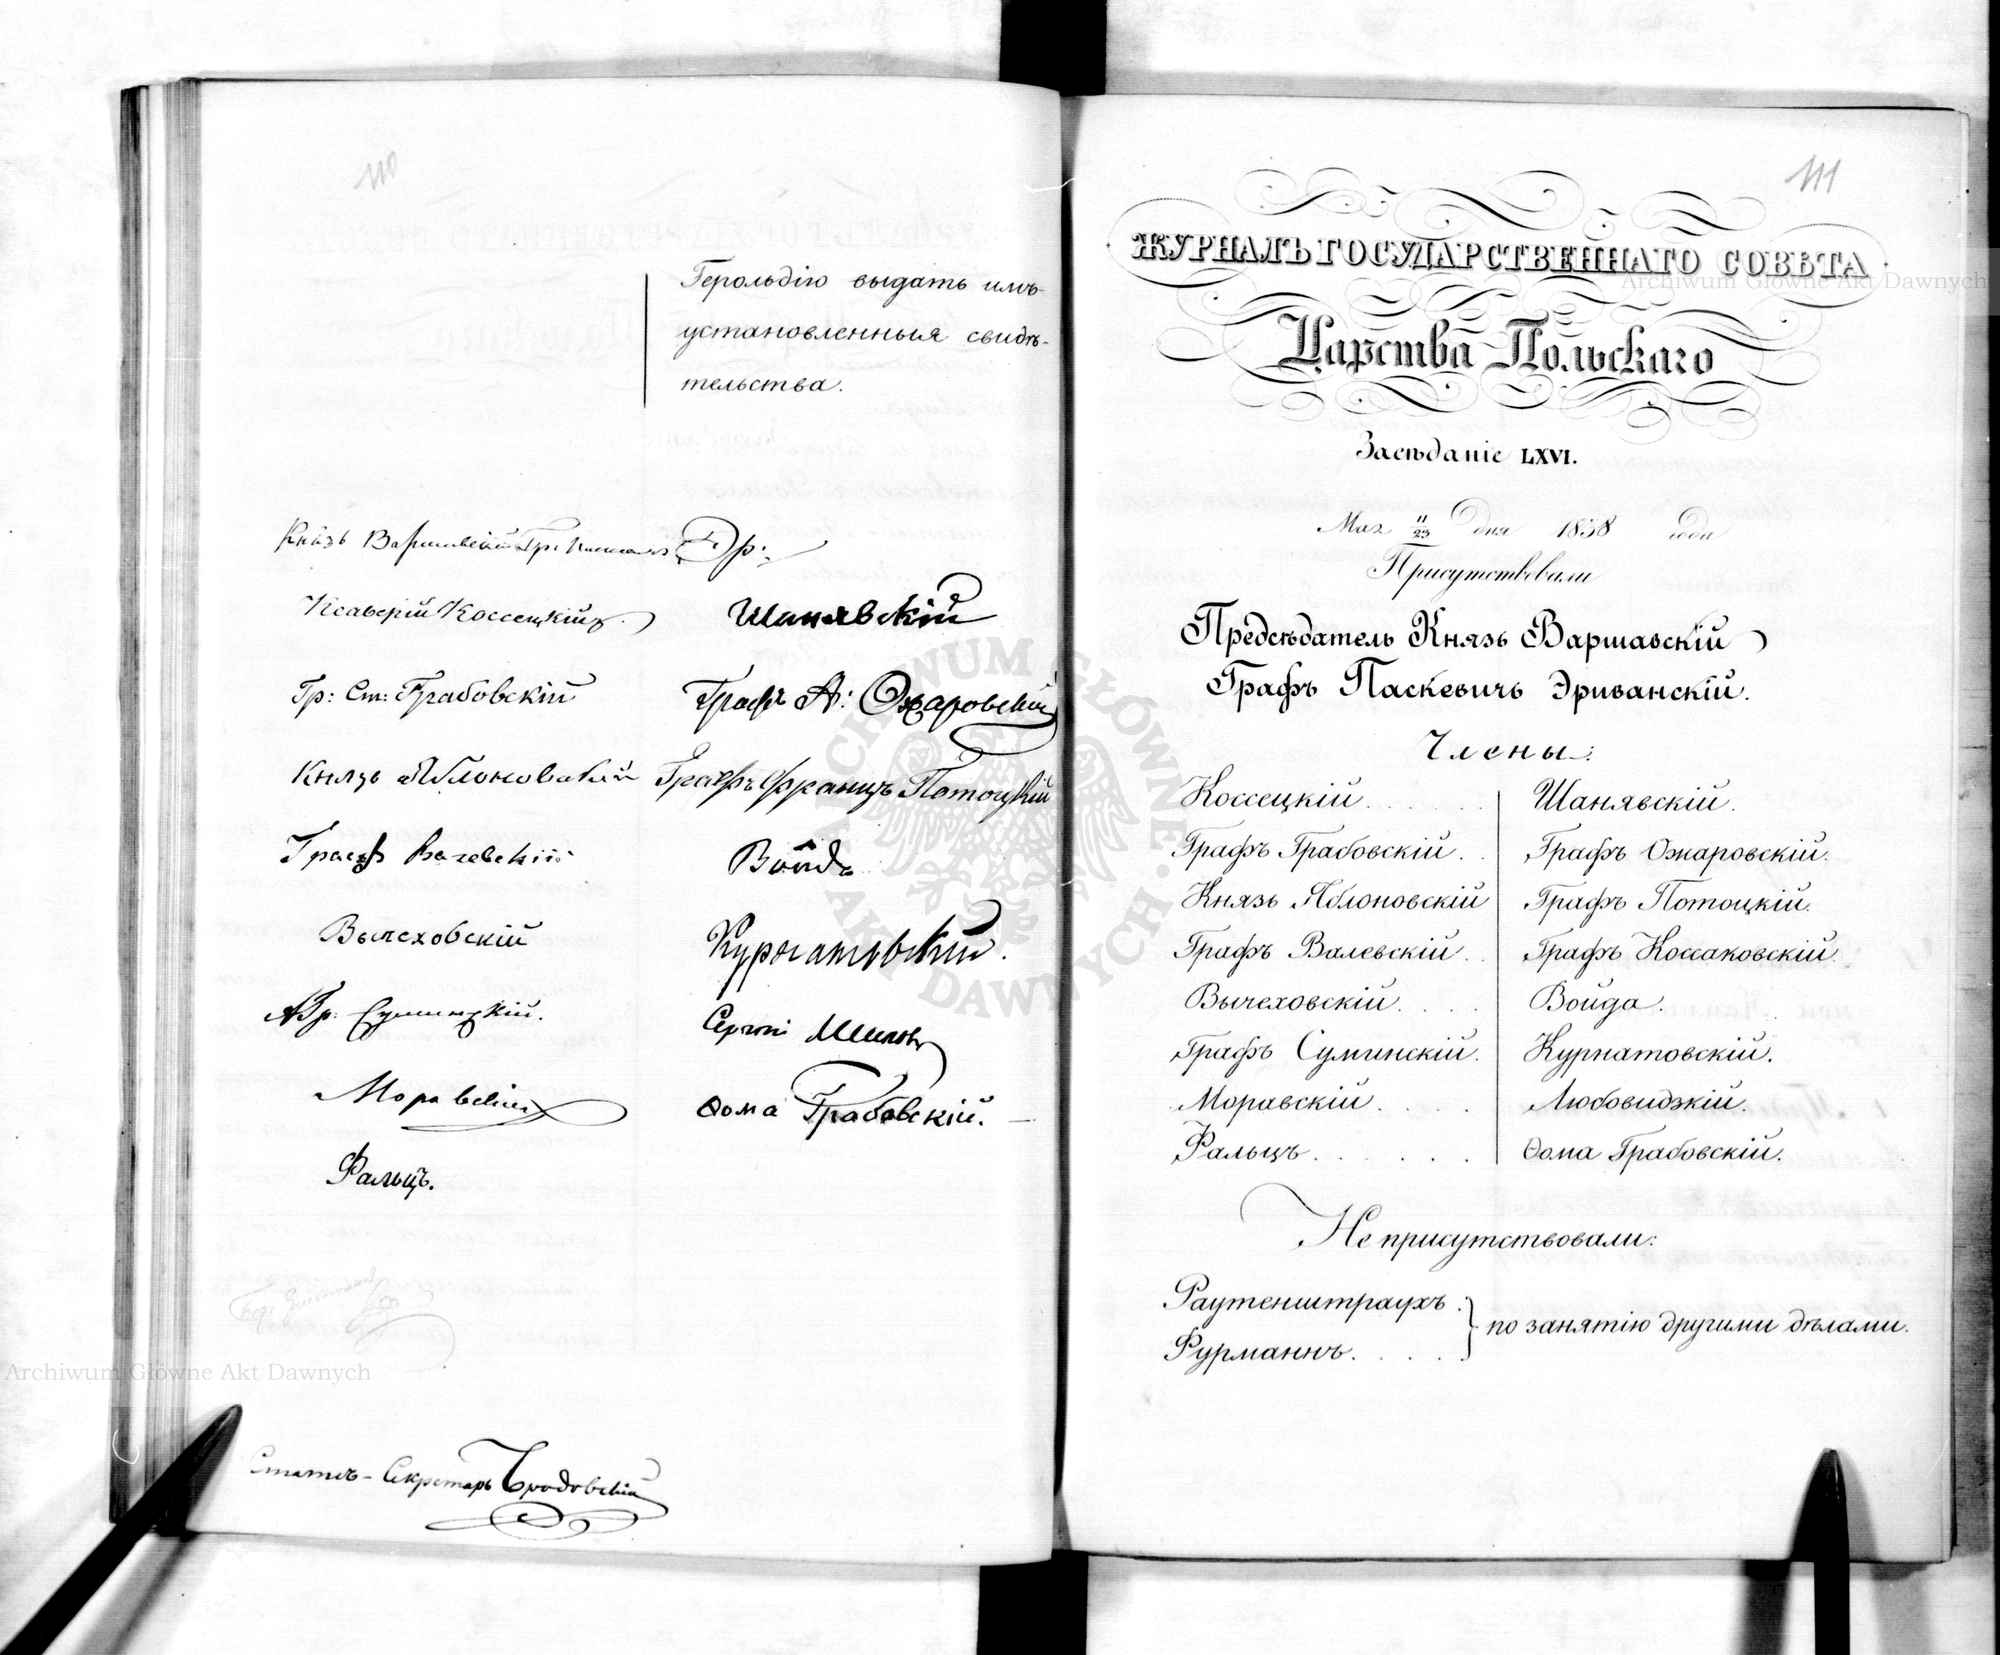 110
Герольдію выдать имъ
установленныя свидѣ-
тельства.
Князь Варшавскій Гр:
Ксаверій Коссецкій
Шанявскій
Гр: Ст: Грабовскій
Графъ А: Ожаровскій
Князь Яблоновскій
Графъ Францъ Потоцкій
Графъ Валевскій
Войда
Вычеховскій
Курнатовскій.
А Гр: Суминскій.
Сергій Шиповъ
Моравскій
Ѳома Грабовскій.
Фальцъ.
Статсъ-Секретарь Бродовскій
111
ЖУРНАЛЪ ГОСУДАРСТВЕННАГО СОВѢТА
Царства Польскаго
Засѣданіе LXVI.
Мая 11/23 дня 1838 года
Присутствовали
Предсѣдатель Князь Варшавскій
Графъ Паскевичъ Эриванскій.
Члены:
Коссецкій . . . . . . Шанявскій.
Графъ Грабовскій. . Графъ Ожаровскій.
Князь Яблоновскій Графъ Потоцкій.
Графъ Валевскій. . Графъ Коссаковскій.
Вычеховскій. . . . Войда.
Графъ Суминскій. Курнатовскій.
Моравскій. . . . Любовидзкій.
Фальцъ. . . . . . Ѳома Грабовскій.
Не присутствовали:
Раутенштраухъ.
Фурманнъ. . . . .
по занятію другими дѣлами.
Archiwum Główne Akt Dawnych
Archiwum Główne Akt Dawnych
ARCHIWUM GŁÓWNE AKT DAWNYCH